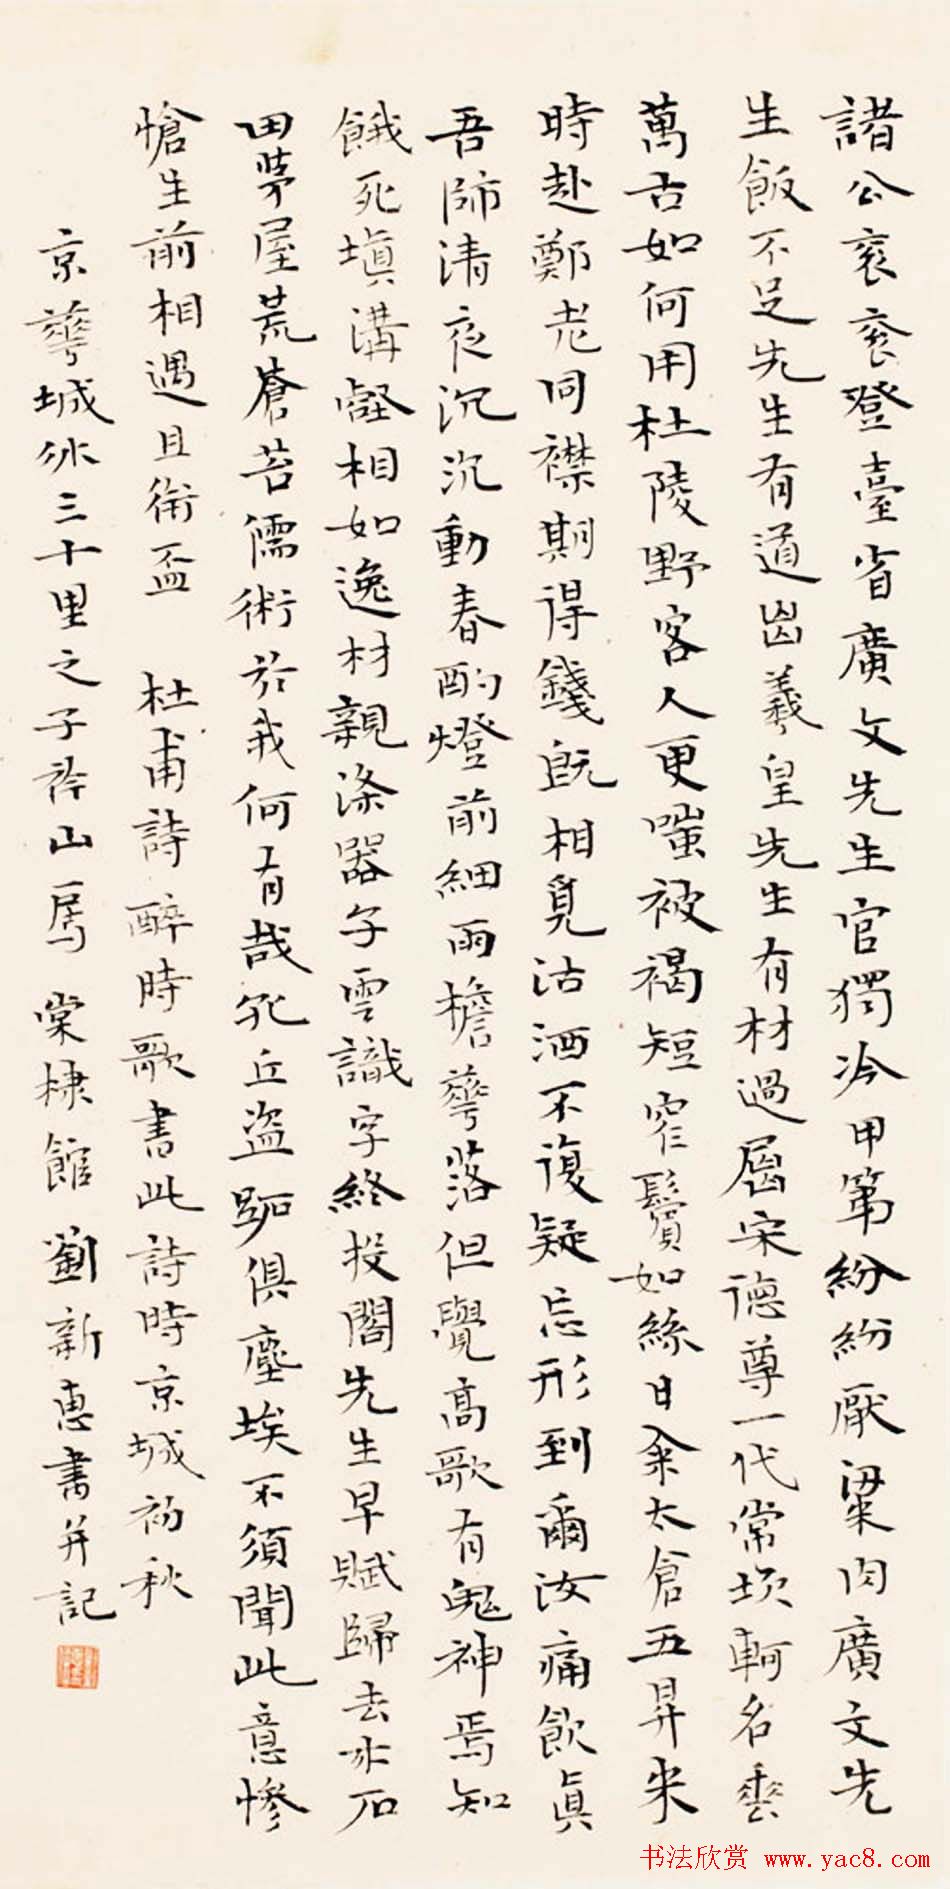 諸公衮衮登臺省廣文先生官獨冷甲第紛紛厭粱肉廣文先
生飯不足先生有道出羲皇先生有材過屈宋德尊一代常坎軻名垂
萬古如何用杜陵野客人更嗤被褐短窄鬢如絲日籴太倉五昇米
時赴鄭老同襟期得錢既相覓沽酒不復疑忘形到爾汝痛飲真
吾師清夜沉沉動春酌燈前細雨檐華落但覺高歌有鬼神焉知
餓死填溝壑相如逸材親滌器子雲識字終投閣先生早賦歸去來石
田茅屋荒蒼苔儒術於我何有哉孔丘盜跖俱塵埃不須聞此意慘
愴生前相遇且銜盃 杜甫詩醉時歌書此詩時京城初秋
京華城外三十里之子衿山居 棠棣館 劉新惠書并記
书法欣赏 www.yac8.com